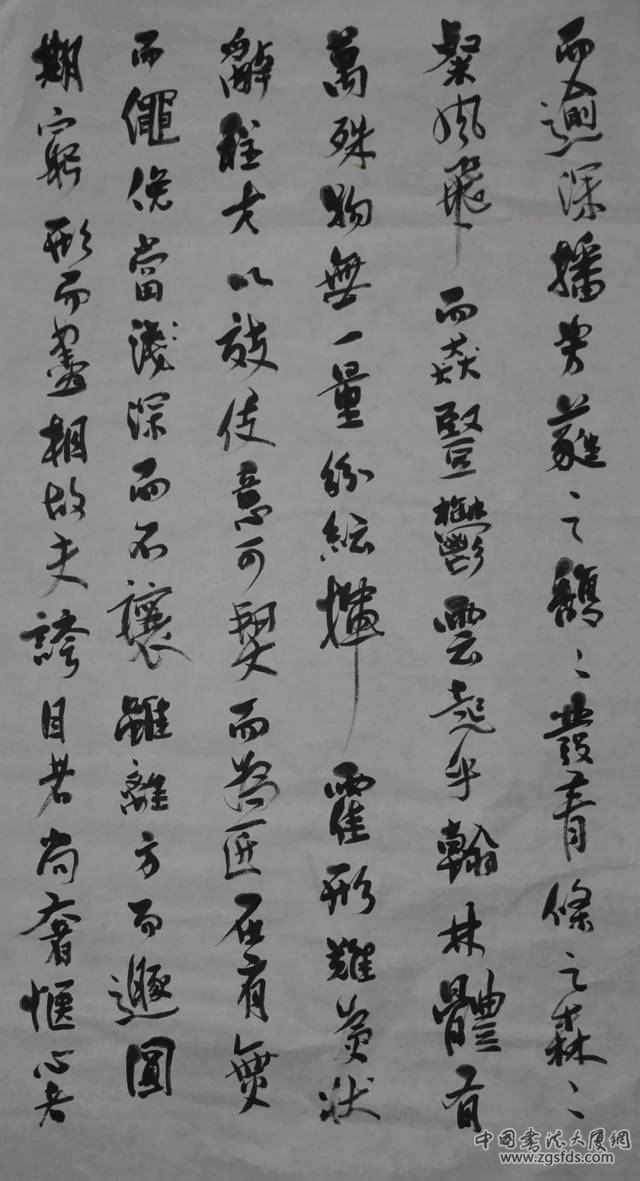 而逾深播芳蕤之馥〻發青條之森〻
粲風飛而猋豎鬱雲起乎翰林體有
萬殊物無一量紛紜揮霍形難為狀
辭程才以效伎意司契而為匠在有無
而僶俛當淺深而不讓雖離方而遯圓
期窮形而盡相故夫誇目者尚奢愜心者
中国书法大厦网
www.zgsfds.com